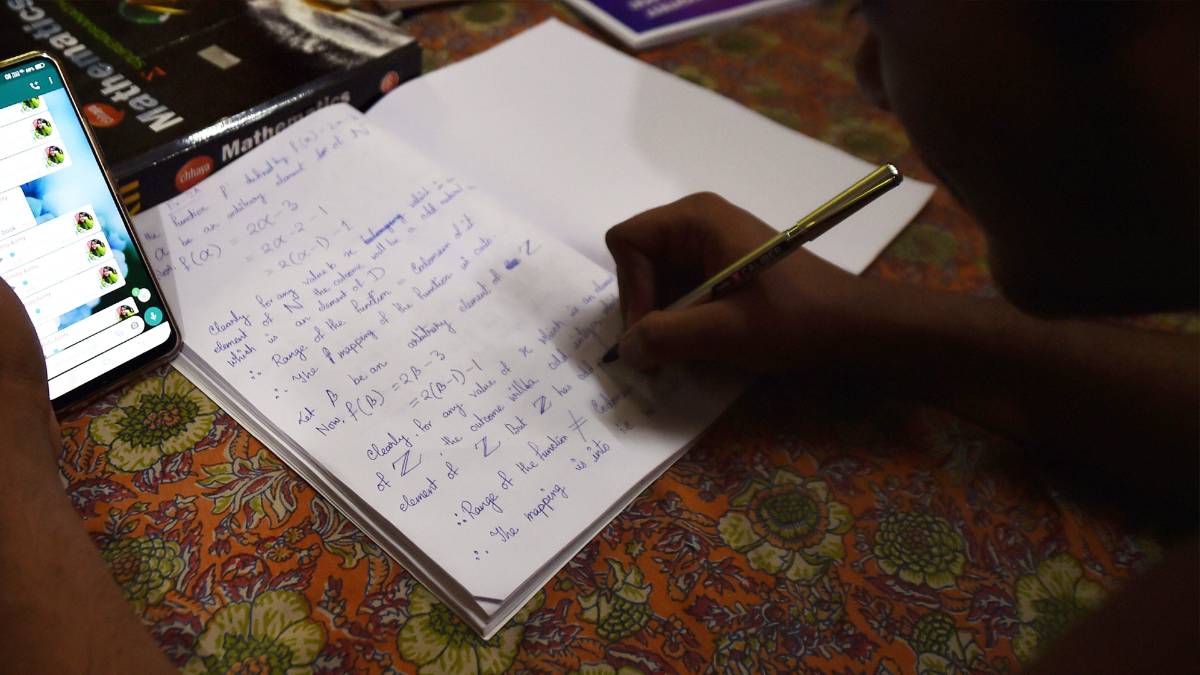 Mathematics
Mathematics
chhaya
the function f defined by f(x) = 2x
α be an arbitrary element of N
f(α) = 2α-3
= 2α-2-1
= 2(α-1)-1
Clearly for any value of x which is
element of N the outcome will be a odd
which is an element of D
∴ Range of the function = Codomain of it
∴ The mapping of the function is onto
Let β be an arbitrary element of Z
Now, f(β) = 2β-3
= 2(β-1)-1
Clearly, for any value of x which is an
of Z, the outcome will be odd
element of Z But Z has
∴ Range of the function ≠
∴ The mapping is into